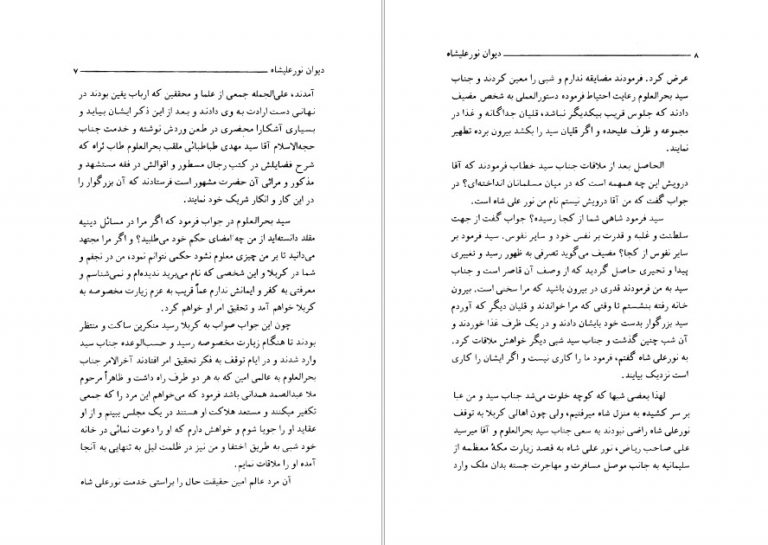 دیوان نورعلیشاه ۷
آمدند، علی‌الجمله جمعی از علما و محققین که ارباب یقین بودند در
نهانی دست ارادت به وی دادند و بعد از این ذکر ایشان بیاید و
بسیاری آشکارا محضری در طعن وردش نوشته و خدمت جناب
حجةالاسلام آقا سید مهدی طباطبائی ملقب بحرالعلوم طاب ثراه که
شرح فضایلش در کتب رجال مسطور و اقوالش در فقه مستشهد و
مذکور و مراثی آن حضرت مشهور است فرستادند که آن بزرگوار را
در این کار و انکار شریک خود نمایند.
سید بحرالعلوم در جواب فرمود که اگر مرا در مسائل دینیه
مقلد دانسته‌اید از من چه امضای حکم خود می‌طلبید؟ و اگر مرا مجتهد
می‌دانید تا بر من چیزی معلوم نشود حکمی نتوانم نمود، من در نجفم و
شما در کربلا و این شخصی که نام می‌برید ندیده‌ام و نمی‌شناسم و
معرفتی به کفر و ایمانش ندارم عماً قریب به عزم زیارت مخصوصه به
کربلا خواهم آمد و تحقیق امر او خواهم کرد.
چون این جواب صواب به کربلا رسید منکرین ساکت و منتظر
بودند تا هنگام زیارت مخصوصه رسید و حسب‌الوعده جناب سید
وارد شدند و در ایام توقف به فکر تحقیق امر افتادند آخرالامر جناب
بحرالعلوم به عالمی امین که به هر دو طرف راه داشت و ظاهراً مرحوم
ملا عبدالصمد همدانی باشد فرمود که می‌خواهم این مرد را که جمعی
تکفیر میکنند و مستعد هلاکت او هستند در یک مجلس ببینم و از او
عقاید او را جویا شوم و خواهش دارم که او را دعوت نمائی در خانه
خود شبی به طریق اختفا و من نیز در ظلمت لیل به تنهایی به آنجا
آمده او را ملاقات نمایم.
آن مرد عالم امین حقیقت حال را براستی خدمت نورعلی شاه
۸ دیوان نورعلیشاه
عرض کرد. فرمودند مضایقه ندارم و شبی را معین کردند و جناب
سید بحرالعلوم رعایت احتیاط فرموده دستورالعملی به شخص مضیف
دادند که جلوس قریب بیکدیگر نباشد، قلیان جداگانه و غذا در
مجموعه و ظرف علیحده و اگر قلیان سید را بکشد بیرون برده تطهیر
نمایند.
الحاصل بعد از ملاقات جناب سید خطاب فرمودند که آقا
درویش این چه همهمه است که در میان مسلمانان انداخته‌ای؟ در
جواب گفت که من آقا درویش نیستم نام من نور علی شاه است.
سید فرمود شاهی شما از کجا رسیده؟ جواب گفت از جهت
سلطنت و غلبه و قدرت بر نفس خود و سایر نفوس. سید فرمود بر
سایر نفوس از کجا؟ مضیف می‌گوید تصرفی به ظهور رسید و تغییری
پیدا و تحیری حاصل گردید که از وصف آن قاصر است و جناب
سید به من فرمودند قدری در بیرون باشید که مرا سخنی است. بیرون
خانه رفته بنشستم تا وقتی که مرا خواندند و قلیان دیگر که آوردم
سید بزرگوار بدست خود بایشان دادند و در یک ظرف غذا خوردند و
آن شب چنین گذشت و جناب سید شبی دیگر خواهش ملاقات کرد.
به نورعلی شاه گفتم، فرمود ما را کاری نیست و اگر ایشان را کاری
است نزدیک بیایند.
لهذا بعضی شبها که کوچه خلوت می‌شد جناب سید و من عبا
بر سر کشیده به منزل شاه میرفتیم، ولی چون اهالی کربلا به توقف
نورعلی شاه راضی نبودند به سعی جناب سید بحرالعلوم و آقا میرسید
علی صاحب ریاض، نور علی شاه به قصد زیارت مکهٔ معظمه از
سلیمانیه به جانب موصل مسافرت و مهاجرت جسته بدان ملک وارد